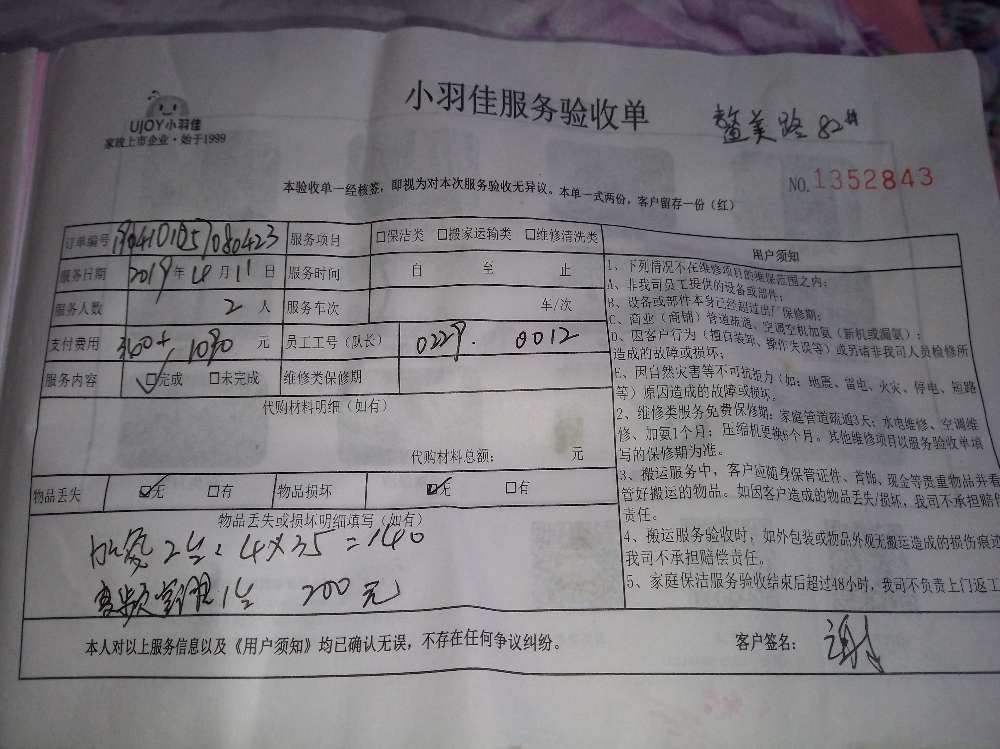 小羽佳服务验收单
鳌美路82#
UJOY小羽佳
家政上市企业·始于1999
NO.1352843
本验收单一经核签，即视为对本次服务验收无异议。本单一式两份，客户留存一份（红）
订单编号 服务项目 □保洁类 □搬家运输类 □维修清洗类
服务日期 2019年4月11日 服务时间 自 至 止
服务人数 2 人 服务车次 车/次
支付费用 元 员工工号（队长） 0229. 0012
服务内容 ☑完成 □未完成 维修类保修期
代购材料明细（如有）
代购材料总额： 元
物品丢失 ☑无 □有 物品损坏 ☑无 □有
物品丢失或损坏明细填写（如有）
加氨2台：4×35=140
1台 200元
用户须知
1、下列情况不在维修项目的维保范围之内：
A、非我司员工提供的设备或部件；
B、设备或部件本身已经超过出厂保修期；
C、商业（商铺）管道疏通、空调空机加氨（新机或漏氨）；
D、因客户行为（擅自装卸、操作失误等）或另请非我司人员检修所
造成的故障或损坏；
E、因自然灾害等不可抗拒力（如：地震、雷电、火灾、停电、短路
等）原因造成的故障或损坏。
2、维修类服务免费保修期：家庭管道疏通3天；水电维修、空调维
修、加氨1个月；压缩机更换6个月。其他维修项目以服务验收单填
写的保修期为准。
3、搬运服务中，客户应随身保管证件、首饰、现金等贵重物品并看
管好搬运的物品。如因客户造成的物品丢失/损坏，我司不承担赔偿
责任。
4、搬运服务验收时，如外包装或物品外观无搬运造成的损伤痕迹
我司不承担赔偿责任。
5、家庭保洁服务验收结束后超过48小时，我司不负责上门返工
本人对以上服务信息以及《用户须知》均已确认无误，不存在任何争议纠纷。 客户签名：